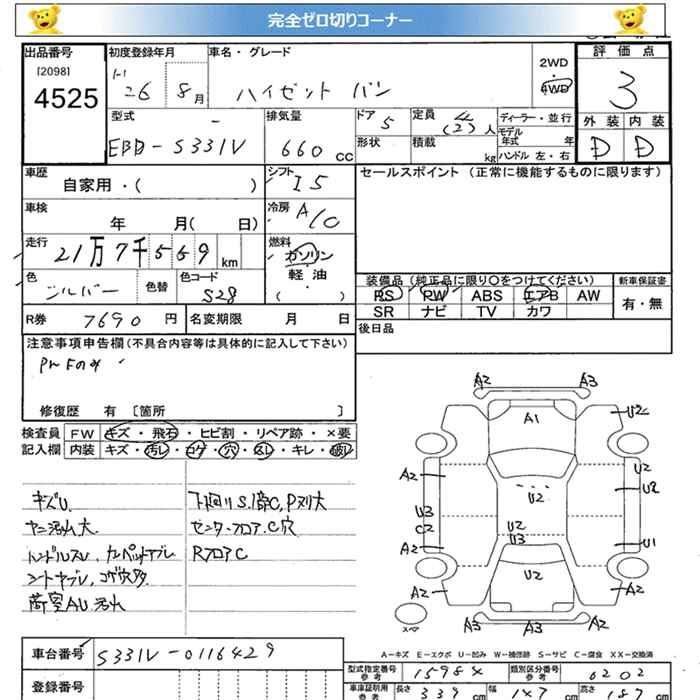 完全ゼロ切りコーナー
出品番号
[2098]
4525
初度登録年月
26 8月
車名・グレード
ハイゼット バン
2WD
4WD
評価点
3
外装 内装
D D
型式
EBD-S331V
排気量
660 cc
ドア
5
形状
定員
4
(2)人
積載
kg
ディーラー・並行
モデル年式 年
ハンドル 左・右
車歴
自家用・( )
シフト
I5
セールスポイント (正常に機能するものに限ります)
車検
年 月( 日)
冷房
A/C
走行
21万7千569 km
燃料
ガソリン
軽油
・
( )
色
シルバー
色替
色コード
S28
装備品 (純正品に限り○をつけてください)
PS PW ABS エアB AW
SR ナビ TV カワ
新車保証書
有・無
R券 7690 円
名変期限 月 日
後日品
注意事項申告欄 (不具合内容等は具体的に記入して下さい)
PWFのみ
修復歴 有 [箇所 ]
検査員
記入欄
FW キズ・飛石・ヒビ割・リペア跡・×要
内装 キズ・汚レ・コゲ・穴・スレ・キレ・破レ
キズU
下回りS.1部C,Pヌリ大
センターフロアC穴
RフロアC
荷室AU
A2 A3
A1
U2
A2
U2
U2
U2
U3
C2
U2
U3
A2
U1
U2
A2
A2
A2 A3 A2
スペア
A-キズ E-エクボ U-凹み W-補修跡 S-サビ C-腐食 XX-交換済
車台番号 S331V-0116429
登録番号
型式指定番号
参考
15984
類別区分番号
参考
6202
車庫証明用
参考
長さ 339 cm
幅 147 cm
高さ 187 cm